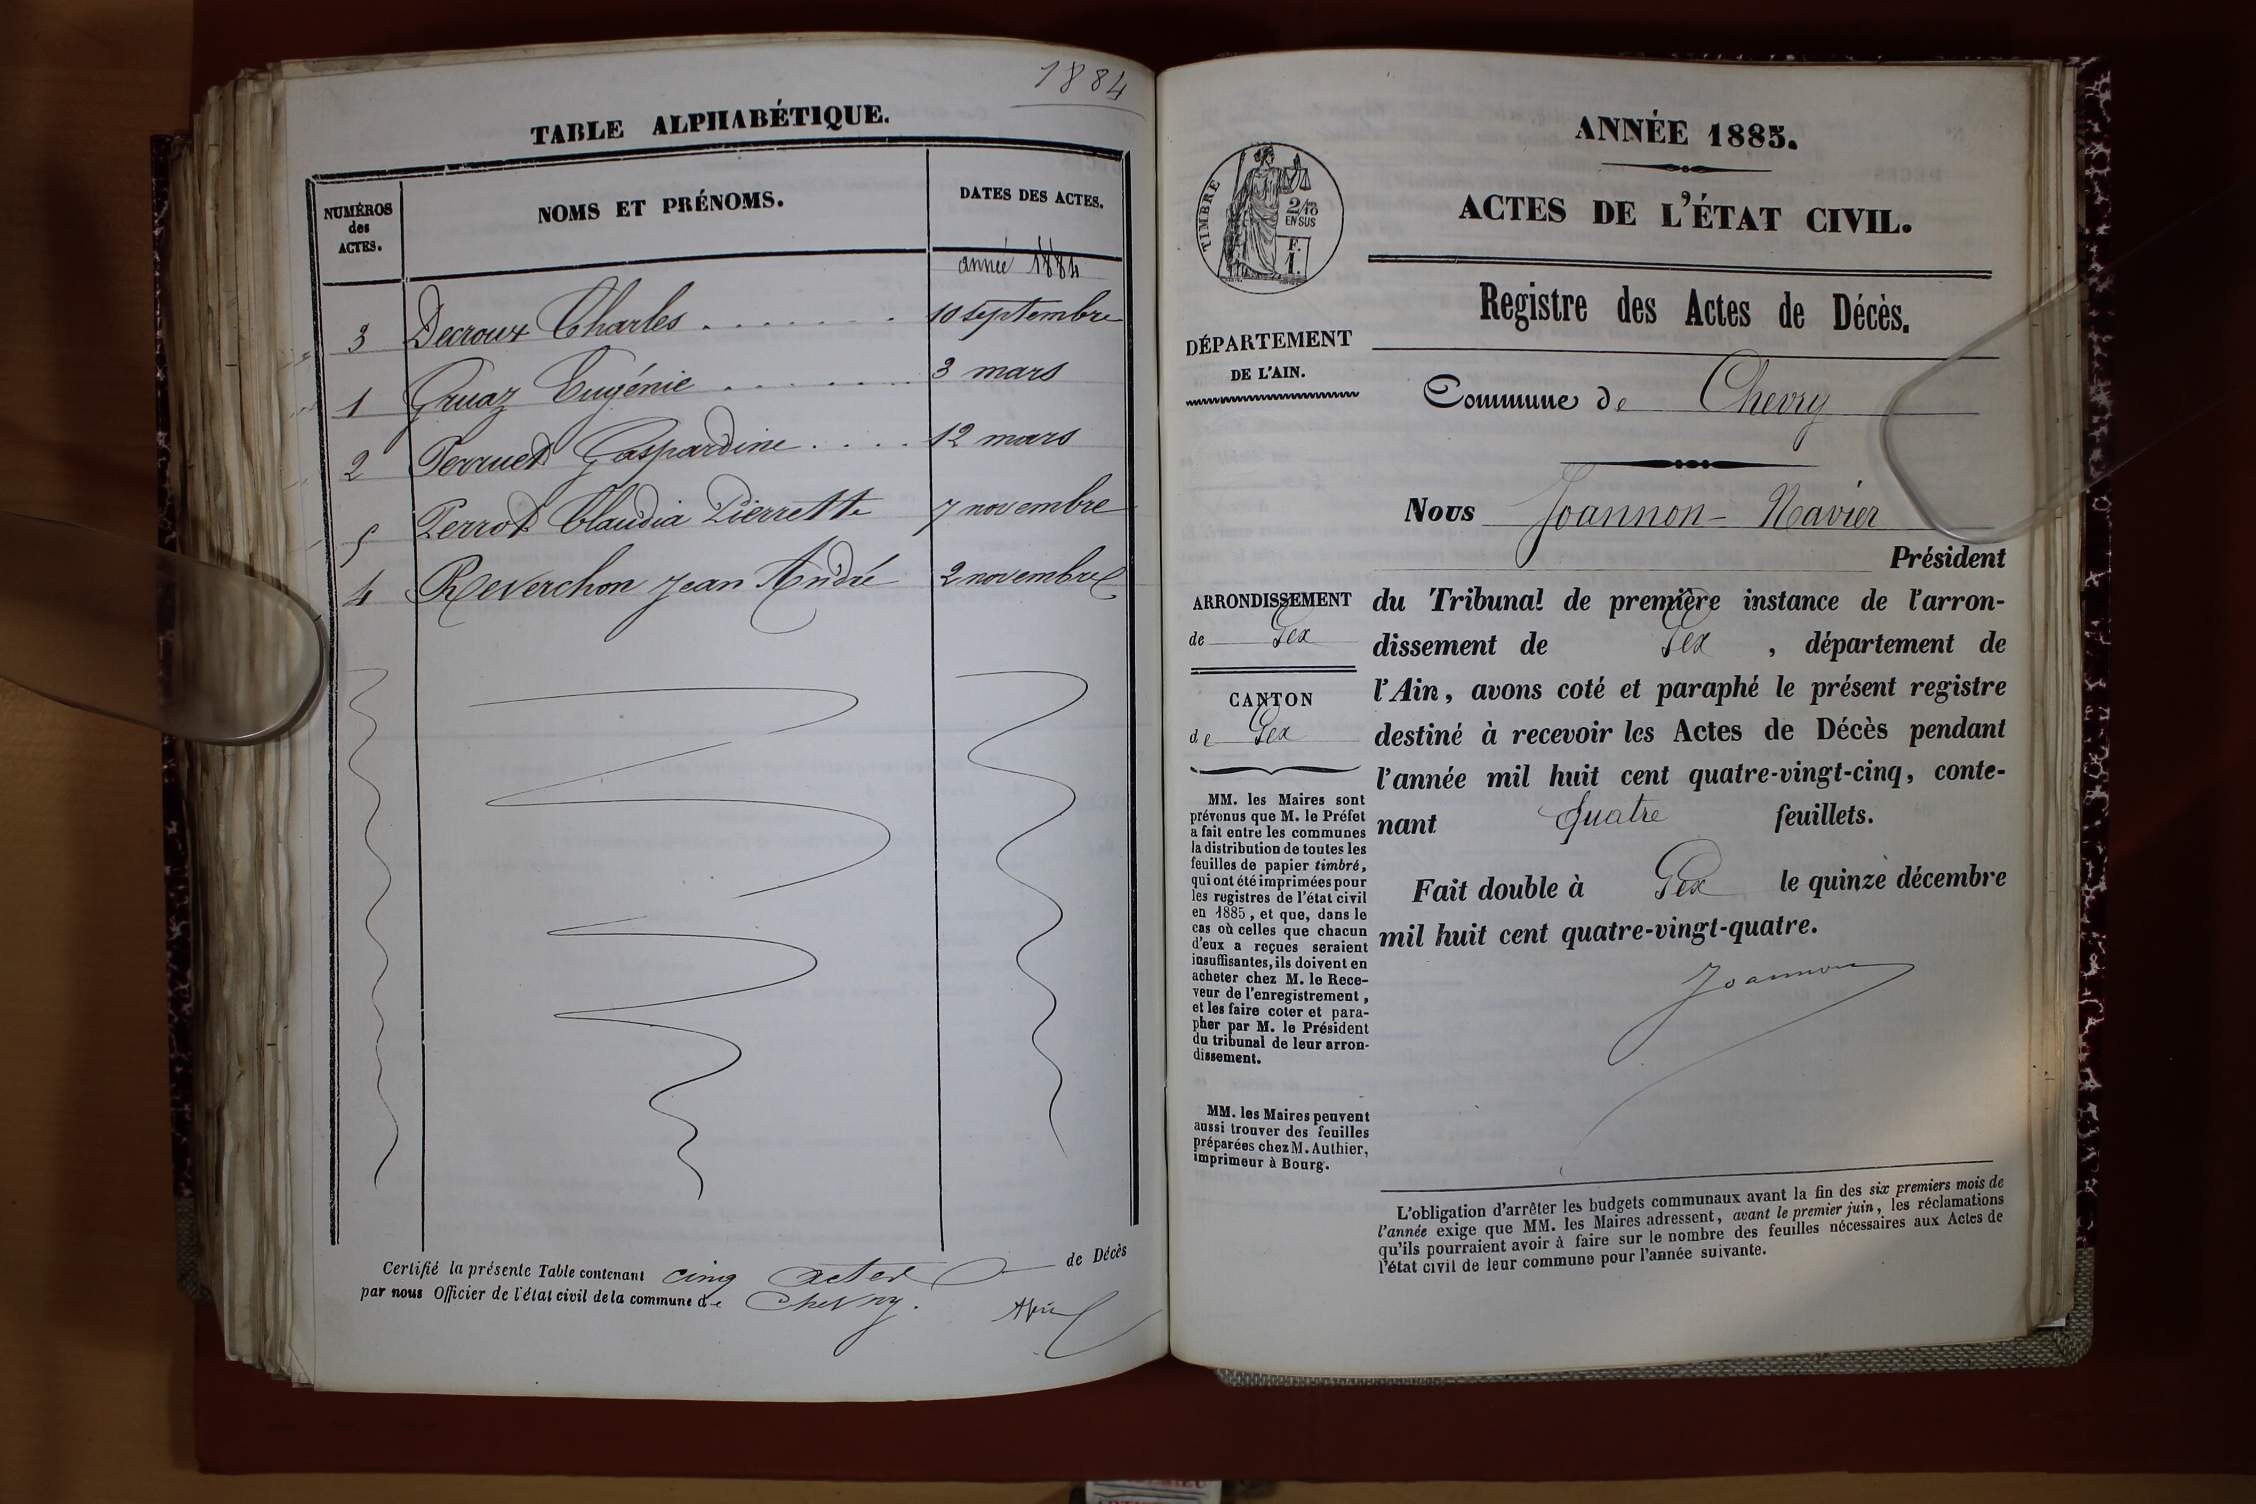 1884
TABLE ALPHABÉTIQUE.
NUMÉROS
des
ACTES.
NOMS ET PRÉNOMS.
DATES DES ACTES.
année 1884
3 Decroux Charles . . . . . . . 10 septembre
1 Gruaz Eugénie . . . . . . . 3 mars
2 Perruet Gaspardine . . . . 12 mars
5 Perrot Claudia Pierrette 7 novembre
4 Reverchon Jean André 2 novembre
Certifié la présente Table contenant cinq actes de Décès
par nous Officier de l'état civil de la commune de Chevry.
TIMBRE
2/10
EN SUS
F.
1.
DÉPARTEMENT
DE L'AIN.
ARRONDISSEMENT
de Gex
CANTON
de Gex
MM. les Maires sont
prévenus que M. le Préfet
a fait entre les communes
la distribution de toutes les
feuilles de papier timbré,
qui ont été imprimées pour
les registres de l'état civil
en 1885, et que, dans le
cas où celles que chacun
d'eux a reçues seraient
insuffisantes, ils doivent en
acheter chez M. le Rece-
veur de l'enregistrement,
et les faire coter et para-
pher par M. le Président
du tribunal de leur arron-
dissement.
MM. les Maires peuvent
aussi trouver des feuilles
préparées chez M. Authier,
imprimeur à Bourg.
ANNÉE 1885.
ACTES DE L'ÉTAT CIVIL.
Registre des Actes de Décès.
Commune de Chevry
Nous Joannon-Navier
Président
du Tribunal de première instance de l'arron-
dissement de Gex, département de
l'Ain, avons coté et paraphé le présent registre
destiné à recevoir les Actes de Décès pendant
l'année mil huit cent quatre-vingt-cinq, conte-
nant Quatre feuillets.
Fait double à Gex le quinze décembre
mil huit cent quatre-vingt-quatre.
Joannon
L'obligation d'arrêter les budgets communaux avant la fin des six premiers mois de
l'année exige que MM. les Maires adressent, avant le premier juin, les réclamations
qu'ils pourraient avoir à faire sur le nombre des feuilles nécessaires aux Actes de
l'état civil de leur commune pour l'année suivante.